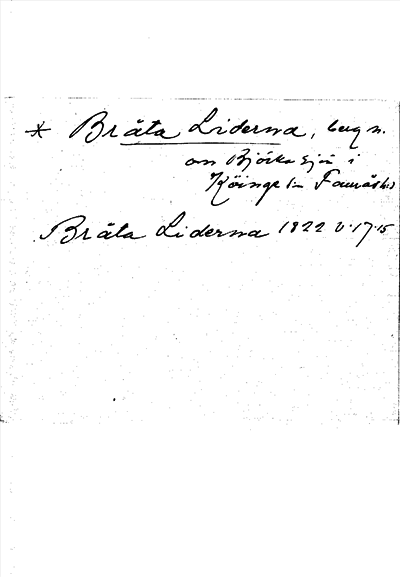 * Bråta Liderna, berg n.
om Björka sjö i
Köinge sn Fauråsh:d
Bråta Liderna 1822 V:17.15